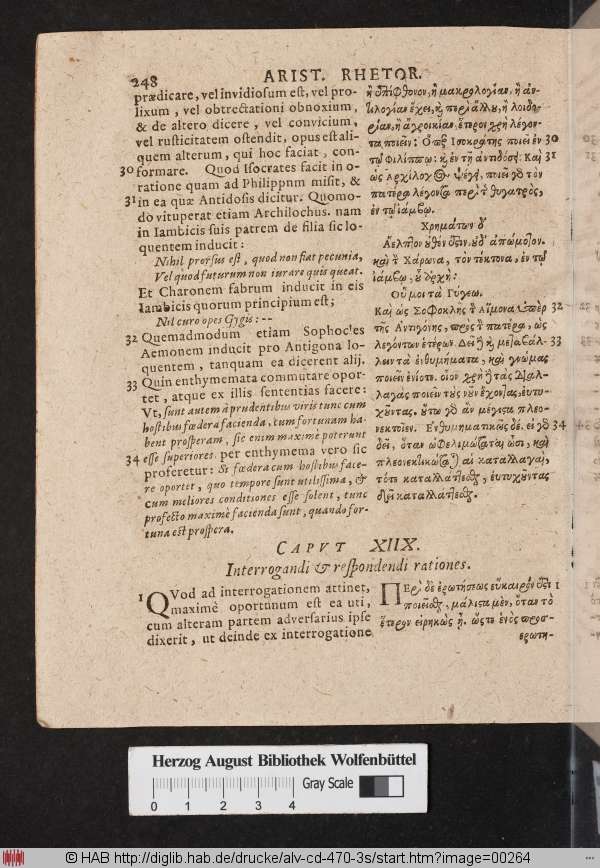 248
ARIST. RHETOR.
prædicare, vel invidiosum est, vel pro-
lixum, vel obtrectationi obnoxium,
& de altero dicere, vel convicium,
vel rusticitatem ostendit, opus est ali-
quem alterum, qui hoc faciat, con-
30 formare. Quod Isocrates facit in o-
ratione quam ad Philippnm misit, &
31 in ea quæ Antidosis dicitur. Quomo-
dò vituperat etiam Archilochus. nam
in Iambicis suis patrem de filia sic lo-
quentem inducit:
Nihil prorsus est, quod non fiat pecunia,
Vel quod futurum non iurare quis queat.
Et Charonem fabrum inducit in eis
Iambicis quorum principium est;
Nil curo opes Gygis: --
32 Quemadmodum etiam Sophocles
Aemonem inducit pro Antigona lo-
quentem, tanquam ea dicerent alij.
33 Quin enthymemata commutare opor-
tet, atque ex illis sententias facere:
Vt, sunt autem à prudentibus viris tunc cum
hostibus fœdera facienda, tum fortunam ha-
bent prosperam, sic enim maximè poterunt
34 esse superiores. per enthymema vero sic
proferetur: Si fœdera cum hostibus face-
re oportet, quo tempore sunt utilissima, &
cum meliores conditiones esse solent, tunc
profecto maximè facienda sunt, quando for-
tuna est prospera.
ἢ ἐπίφθονον, ἢ μακρολογίαν, ἢ ἀν-
τιλογίαν ἔχει, ἢ περὶ ἄλλου, ἢ λοιδο-
ρίαν, ἢ ἀγροικίαν, ἕτερον χρὴ λέγον-
τα ποιεῖν: Ὅπερ Ἰσοκράτης ποιεῖ ἐν 30
τῷ Φιλίππῳ: κ̀ ἐν τῇ ἀντιδόσει Καὶ 31
ὡς Ἀρχίλοχος ψέγει, ποιεῖ γὸ τὸν
πατέρα λέγοντα περὶ τ̃ θυγατρὸς,
ἐν τῷ ἰάμβῳ.
Χρημάτων δ'
Ἄελπτον οὐθέν ἐστιν, οὐδ' ἀπώμοτον.
καὶ τ̃ Χάρωνα, τὸν τέκτονα, ἐν τῷ
ἰάμβῳ, οὗ ἀρχὴ:
Οὔ μοι τὰ Γύγεω.
Καὶ ὡς Σοφοκλῆς τ̃ Αἵμονα ὑπὲρ 32
τῆς Αντιγόνης, πρὸς τ̃ πατέρα, ὡς
λεγόντων ἑτέρων. Δεῖ δὲ κ̀ μεταβάλ- 33
λειν τὰ ἐνθυμήματα, καὶ γνώμας
ποιεῖν ἐνίοτε. οἷον χρὴ δὲ τὰς διαλ-
λαγὰς ποιεῖν τοὺς νοῦν ἔχοντας, εὐτυ-
χοῦντας. οὕτω γὸ ἂν μέγιστα πλεο-
νεκτοῖεν. Ενθυμηματικῶς δέ. εἰ γὸ 34
δεῖ, ὅταν ὠφελιμώταται ὦσι, καὶ
πλεονεκτικώταται αἱ καταλλαγαὶ,
τότε καταλλάττεσθαι, εὐτυχοῦντας
δεῖ καταλλάττεσθαι.
CAPVT XIIX.
Interrogandi & respondendi rationes.
1 QVod ad interrogationem attinet,
maximè oportunum est ea uti,
cum alteram partem adversarius ipse
dixerit, ut deinde ex interrogatione
ΠΕρὶ δὲ ἐρωτήσεως εὔκαιρόν ἐστι 1
ποιεῖσθαι, μάλιστα μὲν, ὅταν τὸ
ἕτερον εἰρηκὼς ᾖ. ὥστε ἑνὸς προσ-
ερωτη-
Herzog August Bibliothek Wolfenbüttel
0 1 2 3 4
Gray Scale
© HAB http://diglib.hab.de/drucke/alv-cd-470-3s/start.htm?image=00264